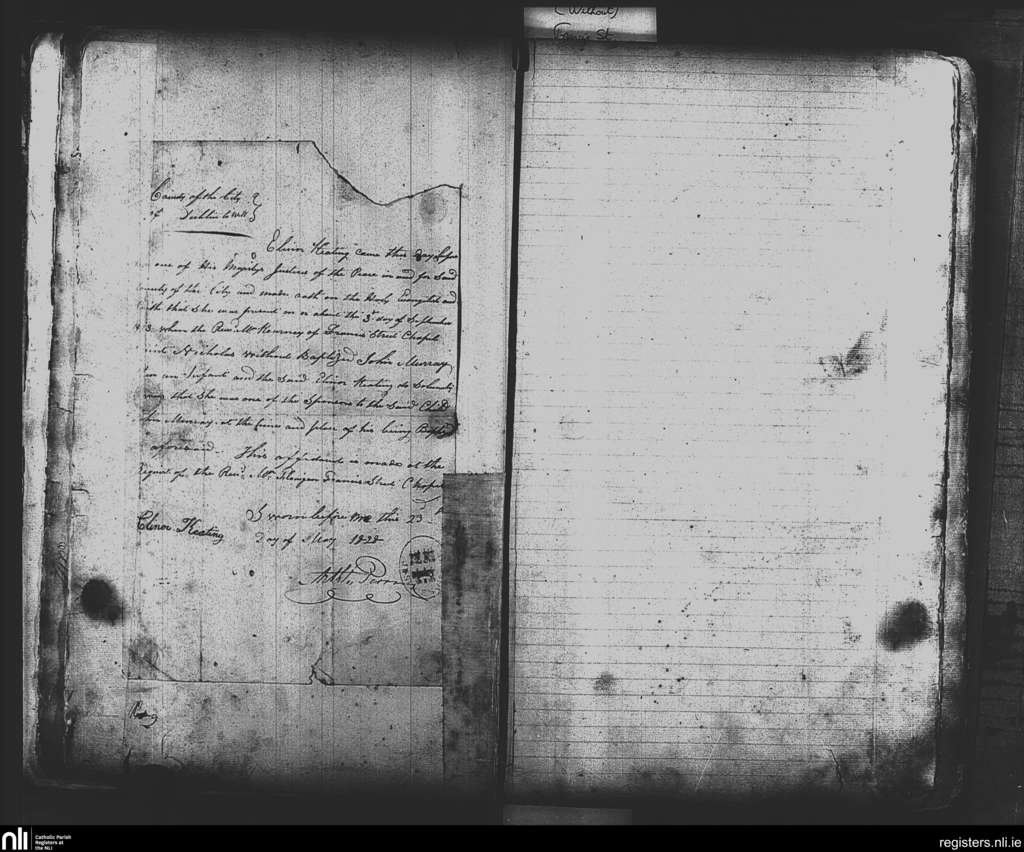 (Without)
Francis St.
County of the City
of Dublin to Wit
Elinor Keating came this day before
one of His Majestys Justices of the Peace in and for Said
County of the City and made oath on the Holy Evangelist and
Saith that She was present on or about the 3d day of September
when the Revd. Mr. Kearney of Francis Street Chapel
Saint Nicholas without Baptized John Murray
then an Infant and the Said Elinor Keating do Solemnly
that She was one of the Sponsors to the Said Child
John Murray at the time and place of his being Baptized
as aforesaid. This affidavit is made at the
Request of the Revd. Mr. Francis Street Chapel
Sworn before me this 23
Elinor Keating
Day of May 1828
nli
Catholic Parish
Registers at
the NLI
registers.nli.ie